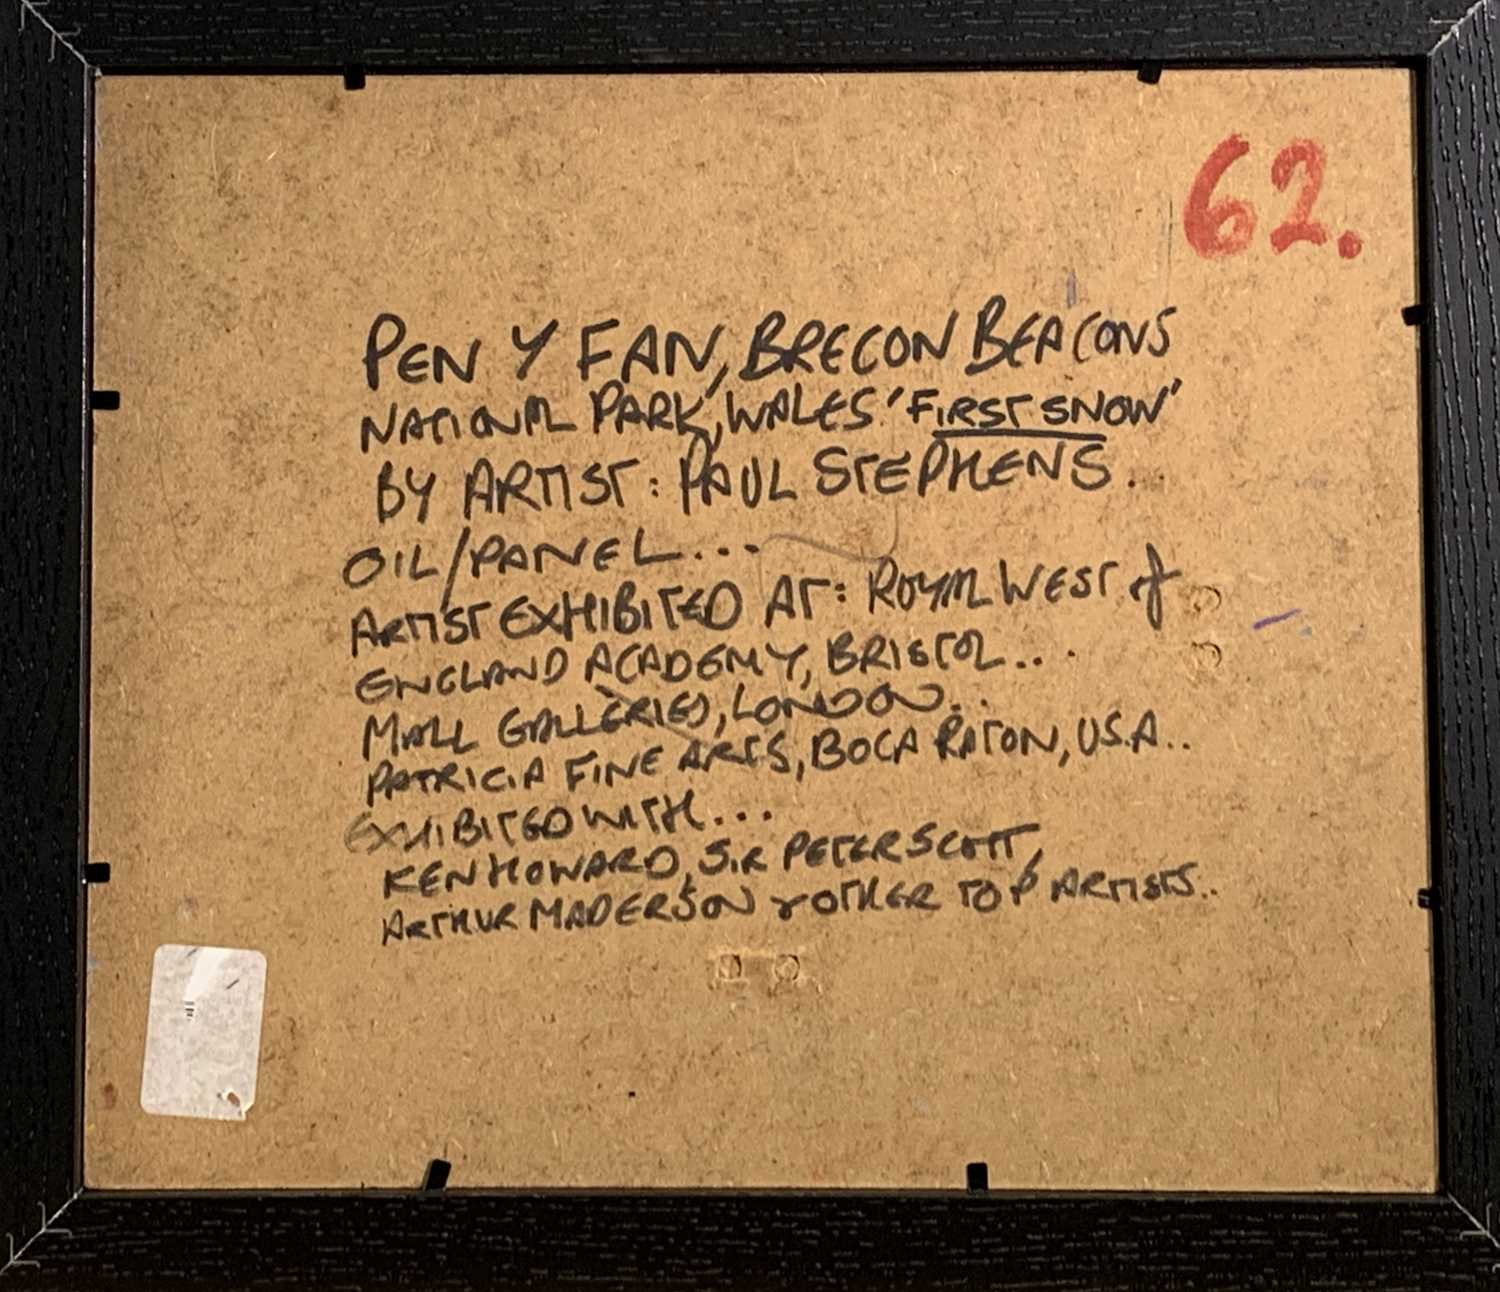 62.
PEN Y FAN, BRECON BEACONS
NATIONAL PARK, WALES 'FIRST SNOW'
BY ARTIST: PAUL STEPHENS..
OIL/PANEL...
ARTIST EXHIBITED AT: ROYAL WEST of
ENGLAND ACADEMY, BRISTOL...
MALL GALLERIES, LONDON...
PATRICIA FINE ARTS, BOCA RATON, U.S.A..
EXHIBITED WITH...
KEN HOWARD, SIR PETER SCOTT,
ARTHUR MADERSON & OTHER TOP ARTISTS..